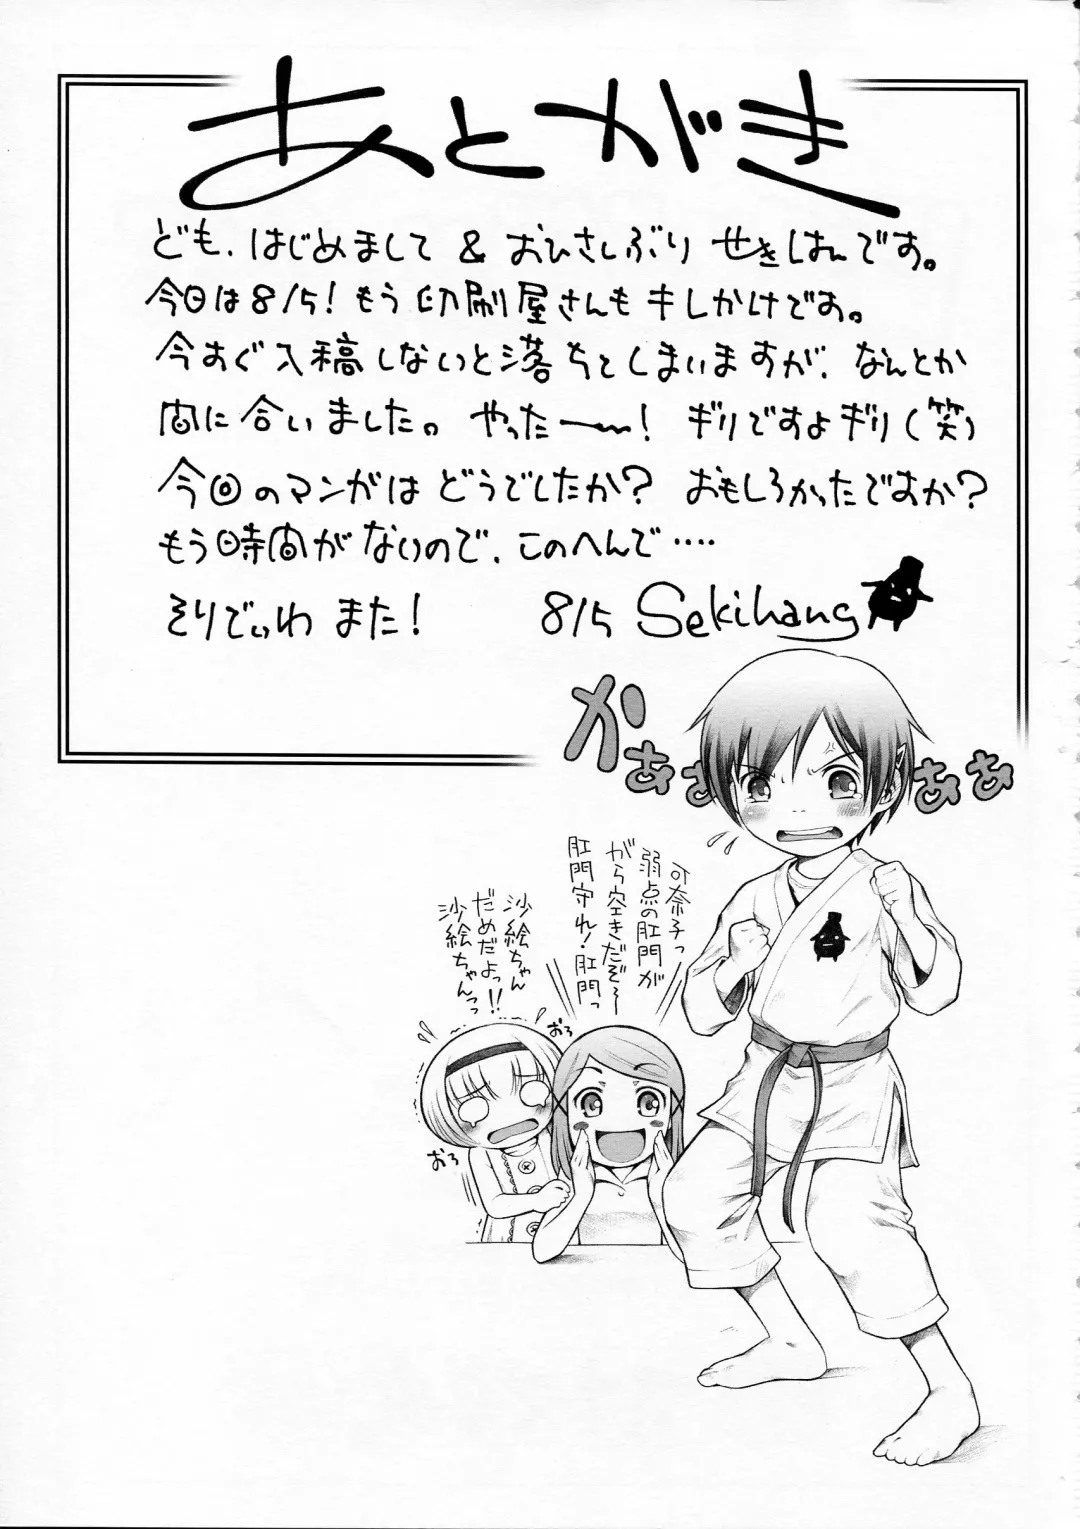 あとがき
ども、はじめまして & おひさしぶり せきはんです。
今日は8/5! もう印刷屋さんもキレかけです。
今すぐ入稿しないと落ちてしまいますが、なんとか
間に合いました。やったー〜! ギリですよギリ(笑)
今回のマンガはどうでしたか? おもしろかったですか?
もう時間がないので、このへんで‥‥
そりでいわ また!
8/5 Sekihang
かぁぁぁぁ
可奈子っ
弱点の肛門が
がら空きだぞ〜
肛門守れ!肛門っ
沙絵ちゃん
だめだよっ!!
沙絵ちゃんっ
おろ
おろ